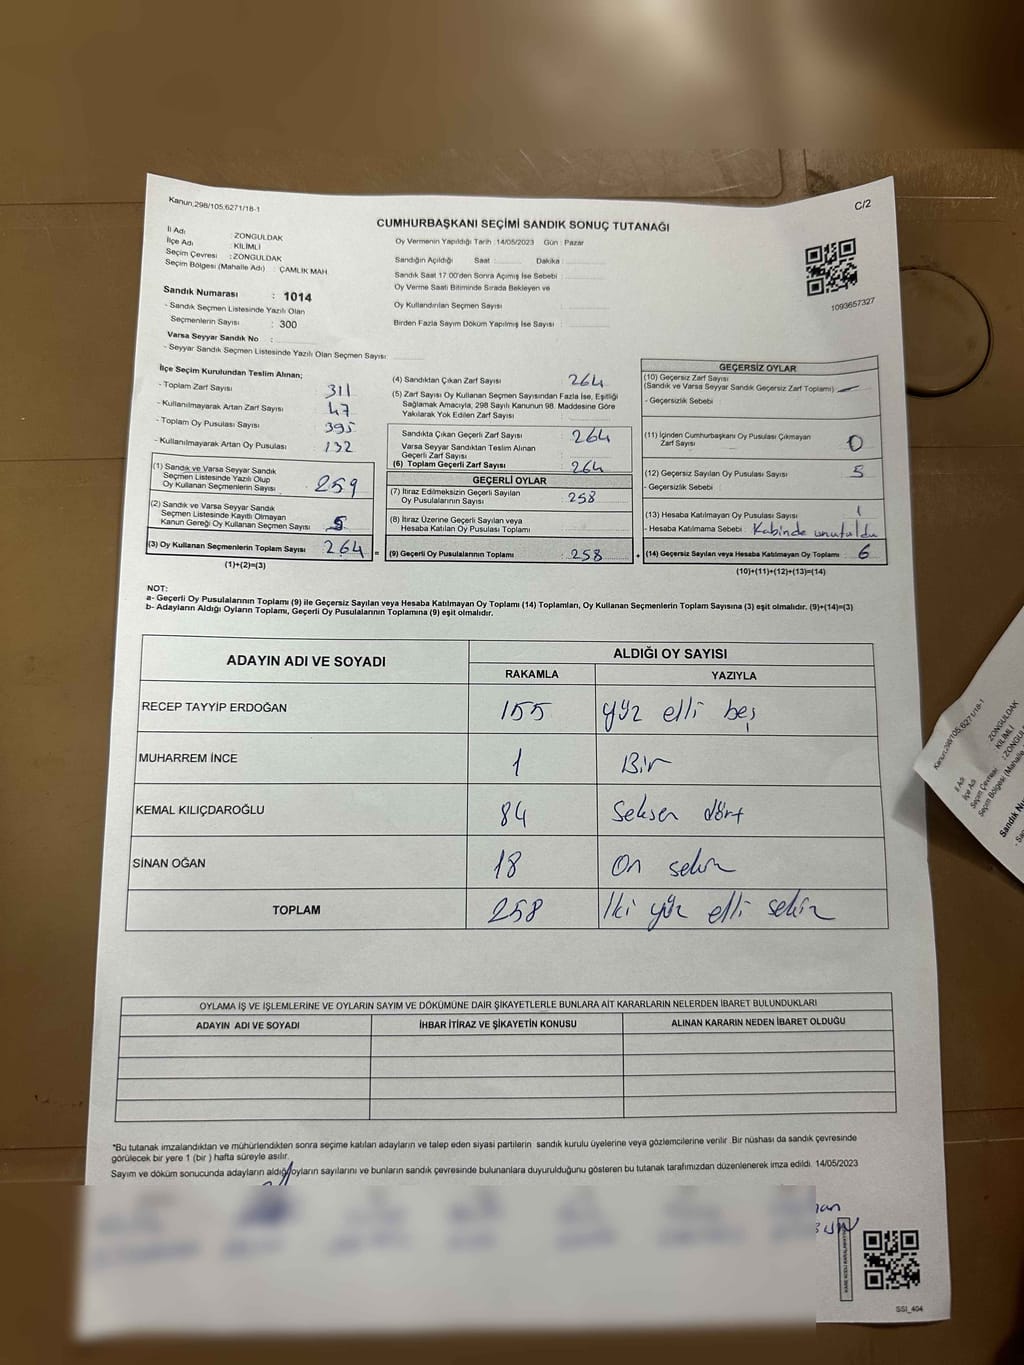 Kanun.298/105,6271/18-1
C/2
CUMHURBAŞKANI SEÇİMİ SANDIK SONUÇ TUTANAĞI
İl Adı : ZONGULDAK
İlçe Adı : KİLİMLİ
Seçim Çevresi : ZONGULDAK
Seçim Bölgesi (Mahalle Adı) : ÇAMLIK MAH
Sandık Numarası : 1014
- Sandık Seçmen Listesinde Yazılı Olan
Seçmenlerin Sayısı : 300
Varsa Seyyar Sandık No :
- Seyyar Sandık Seçmen Listesinde Yazılı Olan Seçmen Sayısı:
Oy Vermenin Yapıldığı Tarih :14/05/2023 Gün : Pazar
Sandığın Açıldığı Saat : Dakika :
Sandık Saat 17.00'den Sonra Açımış İse Sebebi :
Oy Verme Saati Bitiminde Sırada Bekleyen ve
Oy Kullandırılan Seçmen Sayısı :
Birden Fazla Sayım Döküm Yapılmış İse Sayısı :
1093657327
İlçe Seçim Kurulundan Teslim Alınan;
- Toplam Zarf Sayısı 311
- Kullanılmayarak Artan Zarf Sayısı 47
- Toplam Oy Pusulası Sayısı 395
- Kullanılmayarak Artan Oy Pusulası 132
(1) Sandık ve Varsa Seyyar Sandık
Seçmen Listesinde Yazılı Olup
Oy Kullanan Seçmenlerin Sayısı 259
(2) Sandık ve Varsa Seyyar Sandık
Seçmen Listesinde Kayıtlı Olmayan
Kanun Gereği Oy Kullanan Seçmen Sayısı 5
(3) Oy Kullanan Seçmenlerin Toplam Sayısı 264 =
(1)+(2)=(3)
(4) Sandıktan Çıkan Zarf Sayısı 264
(5) Zarf Sayısı Oy Kullanan Seçmen Sayısından Fazla İse, Eşitliği
Sağlamak Amacıyla, 298 Sayılı Kanunun 98. Maddesine Göre
Yakılarak Yok Edilen Zarf Sayısı
Sandıkta Çıkan Geçerli Zarf Sayısı 264
Varsa Seyyar Sandıktan Teslim Alınan
Geçerli Zarf Sayısı
(6) Toplam Geçerli Zarf Sayısı 264
GEÇERLİ OYLAR
(7) İtiraz Edilmeksizin Geçerli Sayılan
Oy Pusulalarının Sayısı 258
(8) İtiraz Üzerine Geçerli Sayılan veya
Hesaba Katılan Oy Pusulası Toplamı
(9) Geçerli Oy Pusulalarının Toplamı 258 +
GEÇERSİZ OYLAR
(10) Geçersiz Zarf Sayısı
(Sandık ve Varsa Seyyar Sandık Geçersiz Zarf Toplamı) —
- Geçersizlik Sebebi :
(11) İçinden Cumhurbaşkanı Oy Pusulası Çıkmayan
Zarf Sayısı 0
(12) Geçersiz Sayılan Oy Pusulası Sayısı 5
- Geçersizlik Sebebi :
(13) Hesaba Katılmayan Oy Pusulası Sayısı 1
- Hesaba Katılmama Sebebi : Kabinde unutuldu
(14) Geçersiz Sayılan veya Hesaba Katılmayan Oy Toplamı 6
(10)+(11)+(12)+(13)=(14)
NOT:
a- Geçerli Oy Pusulalarının Toplamı (9) ile Geçersiz Sayılan veya Hesaba Katılmayan Oy Toplamı (14) Toplamları, Oy Kullanan Seçmenlerin Toplam Sayısına (3) eşit olmalıdır. (9)+(14)=(3)
b- Adayların Aldığı Oyların Toplamı, Geçerli Oy Pusulalarının Toplamına (9) eşit olmalıdır.
ADAYIN ADI VE SOYADI
ALDIĞI OY SAYISI
RAKAMLA YAZIYLA
RECEP TAYYİP ERDOĞAN 155 yüz elli beş
MUHARREM İNCE 1 Bir
KEMAL KILIÇDAROĞLU 84 Seksen dört
SİNAN OĞAN 18 On sekiz
TOPLAM 258 İki yüz elli sekiz
OYLAMA İŞ VE İŞLEMLERİNE VE OYLARIN SAYIM VE DÖKÜMÜNE DAİR ŞİKAYETLERLE BUNLARA AİT KARARLARIN NELERDEN İBARET BULUNDUKLARI
ADAYIN ADI VE SOYADI İHBAR İTİRAZ VE ŞİKAYETİN KONUSU ALINAN KARARIN NEDEN İBARET OLDUĞU
*Bu tutanak imzalandıktan ve mühürlendikten sonra seçime katılan adayların ve talep eden siyasi partilerin sandık kurulu üyelerine veya gözlemcilerine verilir. Bir nüshası da sandık çevresinde
görülecek bir yere 1 (bir ) hafta süreyle asılır.
Sayım ve döküm sonucunda adayların aldığı oyların sayılarını ve bunların sandık çevresinde bulunanlara duyurulduğunu gösteren bu tutanak tarafımızdan düzenlenerek imza edildi. 14/05/2023
SSI_404
Kanun.298/105,6271/18-1
İl Adı ZONGULDAK
İlçe Adı KİLİMLİ
Seçim Çevresi
Seçim Bölgesi (Mahalle